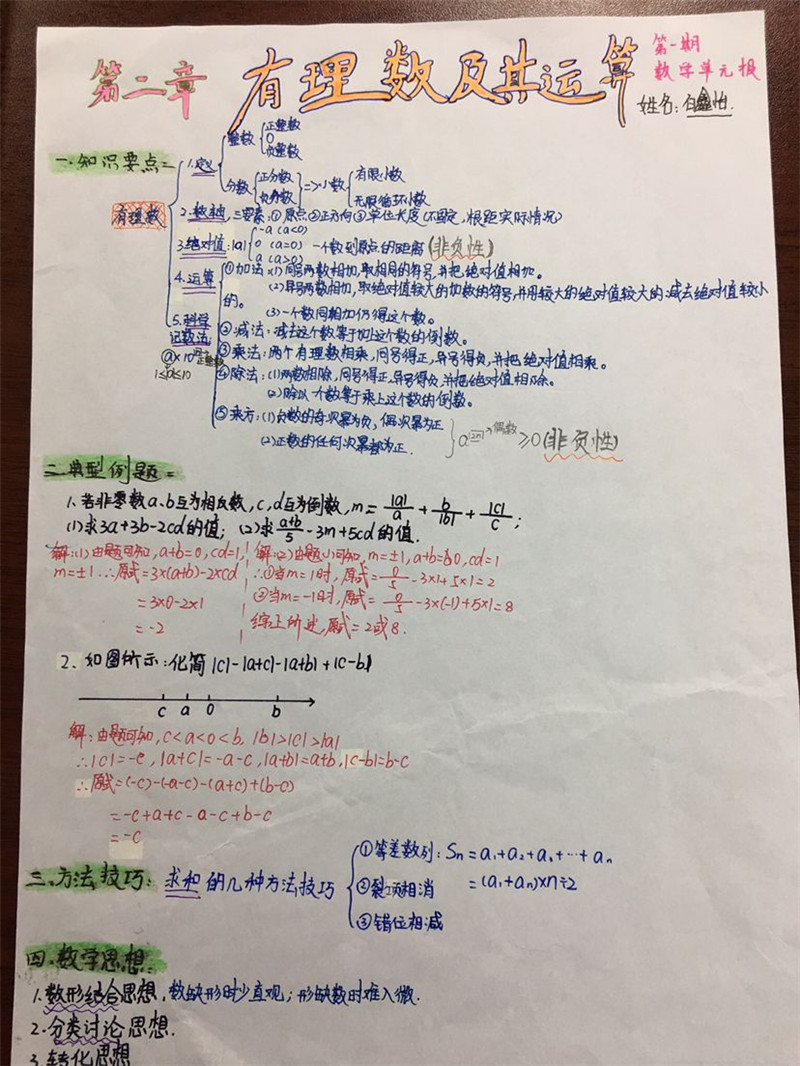 第二章 有理数及其运算
第一期
数学单元报
姓名:
一.知识要点:
有理数
1.定义
整数
正整数
0
负整数
分数
正分数
负分数
=>小数
有限小数
无限循环小数
2.数轴,三要素:①原点②正方向③单位长度(不固定,根距实际情况)
3.绝对值:|a|
-a (a<0)
0 (a=0)
a (a>0)
一个数到原点的距离(非负性)
4.运算
①加法:(1)同号两数相加,取相同的符号,并把绝对值相加。
(2)异号两数相加,取绝对值较大的加数的符号,并用较大的绝对值较大的减去绝对值较小
的。
(3)一个数同0相加仍得这个数。
②减法:减去这个数等于加上这个数的倒数。
③乘法:两个有理数相乘,同号得正,异号得负,并把绝对值相乘。
④除法:(1)两数相除,同号得正,异号得负,并把绝对值相除。
(2)除以一个数等于乘上这个数的倒数。
⑤乘方:(1)负数的奇次幂为负,偶次幂为正
(2)正数的任何次幂都为正.
a 2n→偶数 ≥0(非负性)
5.科学
记数法:
a×10ⁿ→正整数
1≤|a|<10
二.典型例题:
1、若非零数a、b互为相反数,c,d互为倒数,m=|a|/a+b/|b|+|c|/c;
(1)求3a+3b-2cd的值;(2)求(a+b)/5-3m+5cd的值.
解:(1)由题可知,a+b=0,cd=1,
m=±1.∴原式=3×(a+b)-2×cd
=3×0-2×1
=-2
解:(2)由题(1)可知,m=±1,a+b=0,cd=1
∴①当m=1时,原式=0/5-3×1+5×1=2
②当m=-1时,原式=0/5-3×(-1)+5×1=8
综上所述,原式=2或8.
2、如图所示:化简|c|-|a+c|-|a+b|+|c-b|
c a 0 b
解:由题可知,c<a<0<b,|b|>|c|>|a|
∴|c|=-c,|a+c|=-a-c,|a+b|=a+b,|c-b|=b-c
∴原式=(-c)-(-a-c)-(a+c)+(b-c)
=-c+a+c-a-c+b-c
=-c
三.方法技巧:求和的几种方法技巧
①等差数列:Sn=a₁+a₂+a₃+…+an
=(a₁+an)×n÷2
②裂项相消
③错位相减
四.数学思想:
1.数形结合思想,数缺形时少直观;形缺数时难入微.
2.分类讨论思想.
3.转化思想